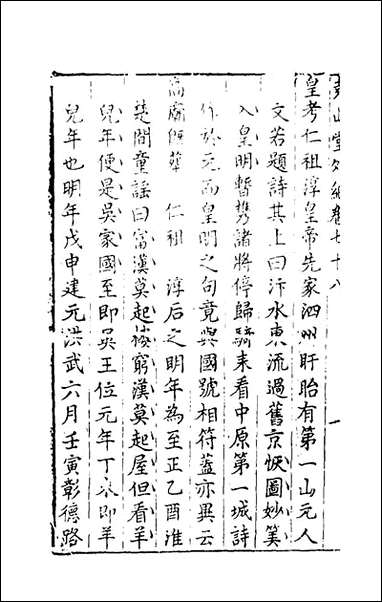 堯山堂外紀卷七十八
皇考仁祖淳皇帝先家泗州盱眙有第一山元人
文若題詩其上曰汴水東流過舊京恢圖妙筭
入皇明暫携諸將停歸騎來看中原第一城詩
作於元而皇明之句竟與國號相符蓋亦異云
高廟旣葬　仁祖　淳后之明年為至正乙酉淮
楚間童謡曰富漢莫起樓窮漢莫起屋但看羊
兒年便是吳家國至即吳王位元年丁未即羊
兒年也明年戊申建元洪武六月壬寅彰德路
一